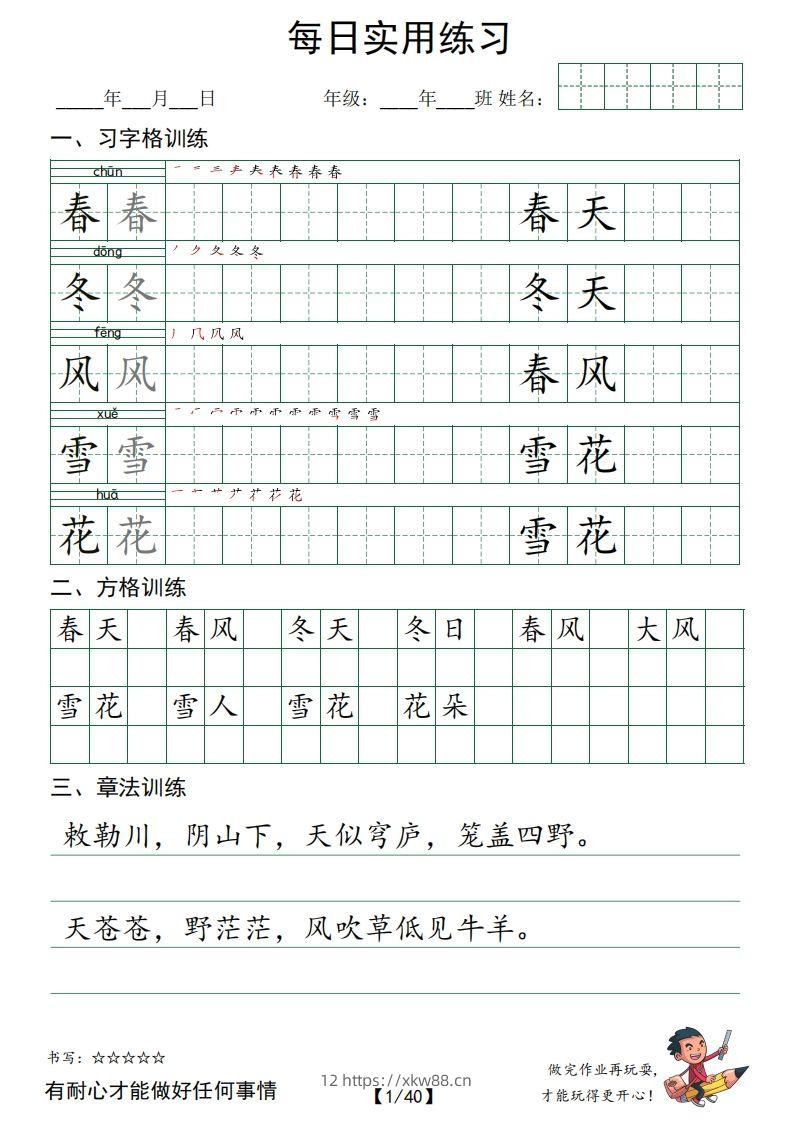 每日实用练习
_____年___月___日 年级：____年____班 姓名：
一、习字格训练
chūn
春 春 春 天
dōng
冬 冬 冬 天
fēng
风 风 春 风
xuě
雪 雪 雪 花
huā
花 花 雪 花
二、方格训练
春天 春风 冬天 冬日 春风 大风
雪花 雪人 雪花 花朵
三、章法训练
敕勒川，阴山下，天似穹庐，笼盖四野。
天苍苍，野茫茫，风吹草低见牛羊。
书写：☆☆☆☆☆
有耐心才能做好任何事情
12 https://xkw88.cn
【1/40】
做完作业再玩耍，
才能玩得更开心！